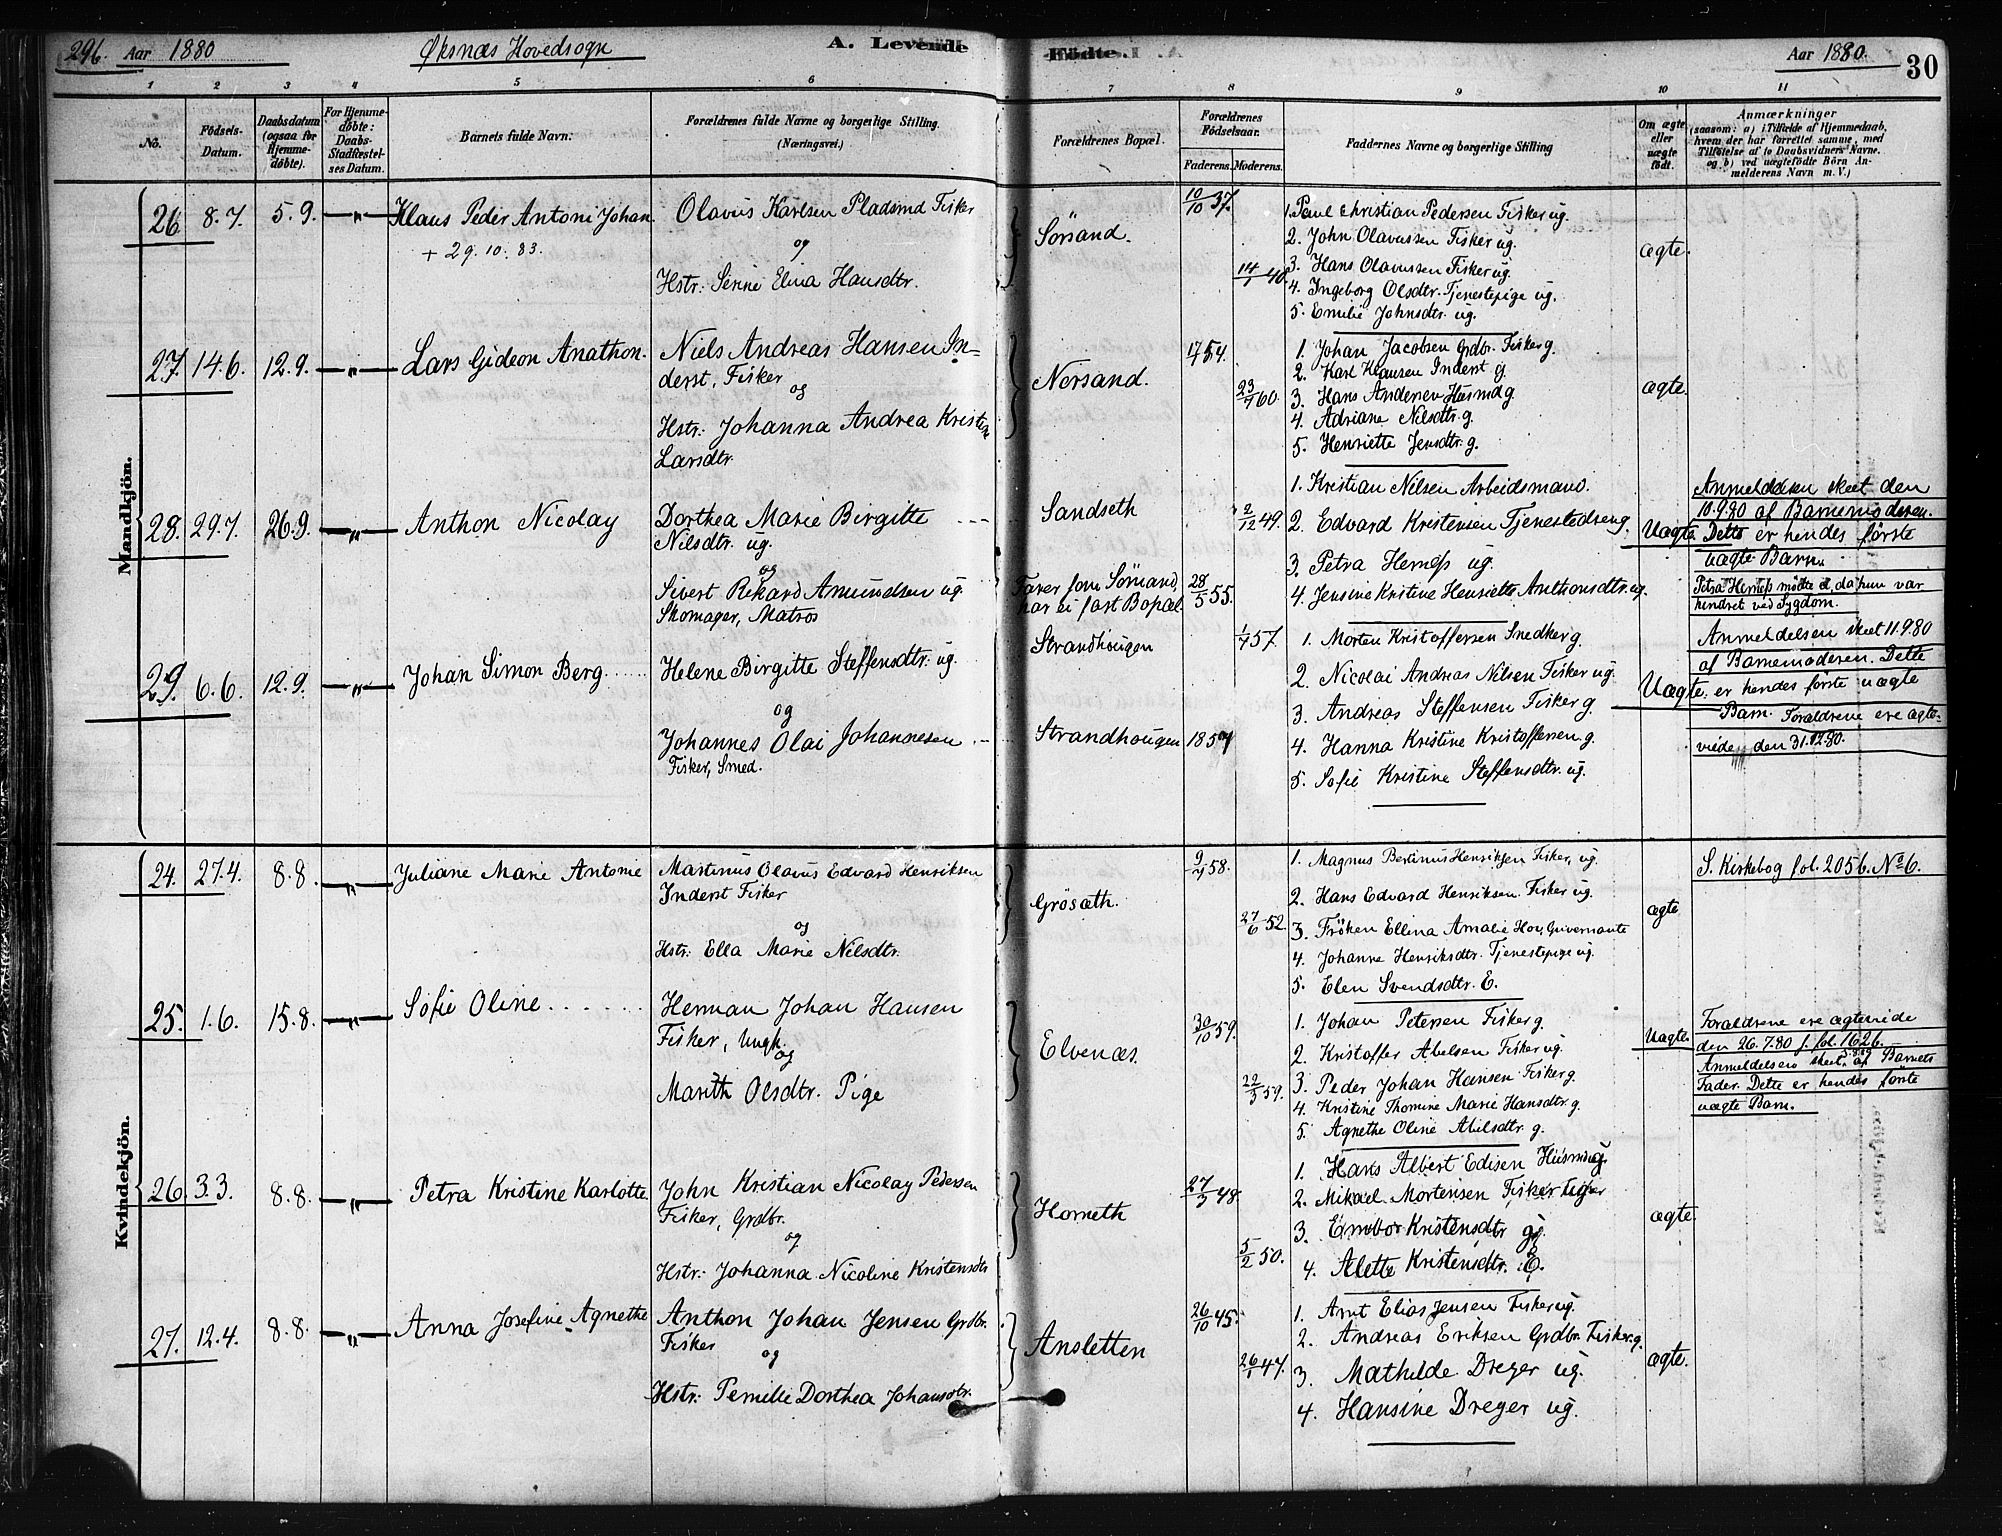 296. Aar 1880 Øksnæs Hovedsogn A. Levende Fødte. Aar 1880. 30
1 2 3 4 5 6 7 8 9 10 11
No.
Fødsels-Datum.
Daabsdatum (ogsaa for Hjemmedøbte).
For Hjemmedøbte: Daabs-Stadfæstelses Datum.
Barnets fulde Navn.
Forældrenes fulde Navne og borgerlige Stilling.
(Næringsvei.)
Forældrenes Bopæl.
Forældrenes Fødselsaar.
Faderens. Moderens.
Faddernes Navne og borgerlige Stilling
Om ægte eller uægte født.
Anmærkninger
(saasom: a) i Tilfælde af Hjemmedaab,
hvem der har forrettet samme, med
Tilføielse af to Daabsvidners Navne.
og b) ved uægtefødte Børn Anmelderens Navn m. V.)
Mandkjön.
26. 8.7. 5.9. —"— Klaus Peder Antoni Johan.
+ 29.10.83.
Olavus Karlsen Pladsmd Fisker
og
Hstr: Serine Elina Hansdtr.
Sørsand.
10/10 37.
14/1 40.
1. Paul Christian Pedersen Fisker ug.
2. John Olavussen Fisker ug.
3. Hans Olavussen Fisker ug.
4. Ingeborg Olsdtr. Tjenestepige ug.
5. Emilie Johnsdtr. ug.
ægte.
27. 14.6. 12.9. —"— Lars Gideon Anathon.
Niels Andreas Hansen In=
derst, Fisker
og
Hstr: Johanna Andrea Kristine
Larsdtr.
Nersand.
54.
23/7 60.
1. Johan Jacobsen Grdbr. Fisker g.
2. Karl Klausen Inderst g.
3. Hans Andersen Husmd g.
4. Adriane Nilsdtr. g.
5. Henriette Jensdtr. g.
ægte.
28. 29.7. 26.9. —"— Anthon Nicolay
Dorthea Marie Birgitte
Nilsdtr. ug.
og
Sivert Rikard Amundsen ug.
Skomager, Matros
Sandseth
Farer fom Sörsand,
har ei fast Bopæl.
28/5 55.
2/12 49.
1. Kristian Nilsen Arbeidsmand.
2. Edvard Kristensen Tjenestedreng.
3. Petra Hernes ug.
4. Jensine Kristine Henriette Anthonsdtr. ug.
Uægte.
Anmeldelsen skeet den
10.9.80 af Barnemoderen.
Dette er hendes første
uægte Barn.
Petra Hernes mötte ei, da hun var
hindret ved Sygdom.
29. 6.6. 12.9. —"— Johan Simon Berg
Helene Birgitte Steffensdtr. ug.
og
Johannes Olai Johannesen
Fisker, Smed.
Strandhougen
Strandhougen
1/7 57.
1. Morten Kristoffersen Snedker g.
2. Nicolai Andreas Nilsen Fisker ug.
3. Andreas Steffensen Fisker g.
4. Hanna Kristine Kristoffersen g.
5. Sofie Kristine Steffensdtr. ug.
Uægte.
Anmeldelsen skeet 11.9.80
af Barnemoderen. Dette
er hendes første uægte
Barn. Forældrene ere ægte-
viede den 31.12.80.
Kvindekjön.
24. 27.4. 8.8. —"— Juliane Marie Antonie
Martinus Olavus Edvard Henriksen
Inderst Fisker
og
Hstr: Ella Marie Nilsdtr.
Grösæth.
58.
27/6 52.
1. Magnus Bertinus Henriksen Fisker, ug.
2. Hans Edvard Henriksen Fisker ug.
3. Fröken Ellina Amalie Hov, Guvernante
4. Johanne Henriksdtr. Tjenestepige ug.
5. Elen Svendsdtr. E.
ægte
S. Kirkebog fol. 205b. No 6.
25. 1.6. 15.8. —"— Sofie Oline
Herman Johan Hansen
Fisker, Ungk.
og
Marith Olsdtr. Pige
Elvenæs.
30/10 59.
22/3 59.
1. Johan Petersen Fisker g.
2. Kristoffer Abelsen Fisker ug.
3. Peder Johan Hansen Fisker g.
4. Kristine Thomine Marie Hansdtr. g.
5. Agnethe Oline Abelsdtr. g.
Uægte.
Forældrene ere ægteviede
den 26.7.80 f. fol. 162b.
Anmeldelsen skeet af Barnets
Fader. Dette er hendes første
uægte Barn.
26. 3.3. 8.8. —"— Petra Kristine Karlotte.
John Kristian Nicolay Pedersen
Fisker, Grdbr.
og
Hstr: Johanna Nicoline Kristensdtr
Horneth
27/3 48.
5/2 50.
1. Hans Albert Edisen Husmd g.
2. Mikael Mortensen Fisker
3. Embor Kristensdtr
4. Alette Kristensdtr. E.
ægte.
27. 12.4. 8.8. —"— Anna Josefine Agnethe
Anthon Johan Jensen Grdbr.
Fisker
og
Hstr: Pernille Dorthea Johansdtr.
Ansletten
26/10 45.
26/1 47.
1. Arnt Elias Jensen Fisker ug.
2. Andreas Eriksen Grdbr. Fisker. g.
3. Mathilde Dreyer ug.
4. Hansine Dreyer ug.
ægte.